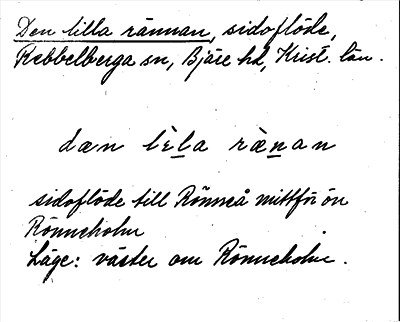 Den lilla rännan, sidoflöde,
Rebbelberga sn, Bjäre hd, Krist. län.
dæn lèla rænan
sidoflöde till Rönneå mittför ön
Rönneholm
Läge: väster om Rönneholm.